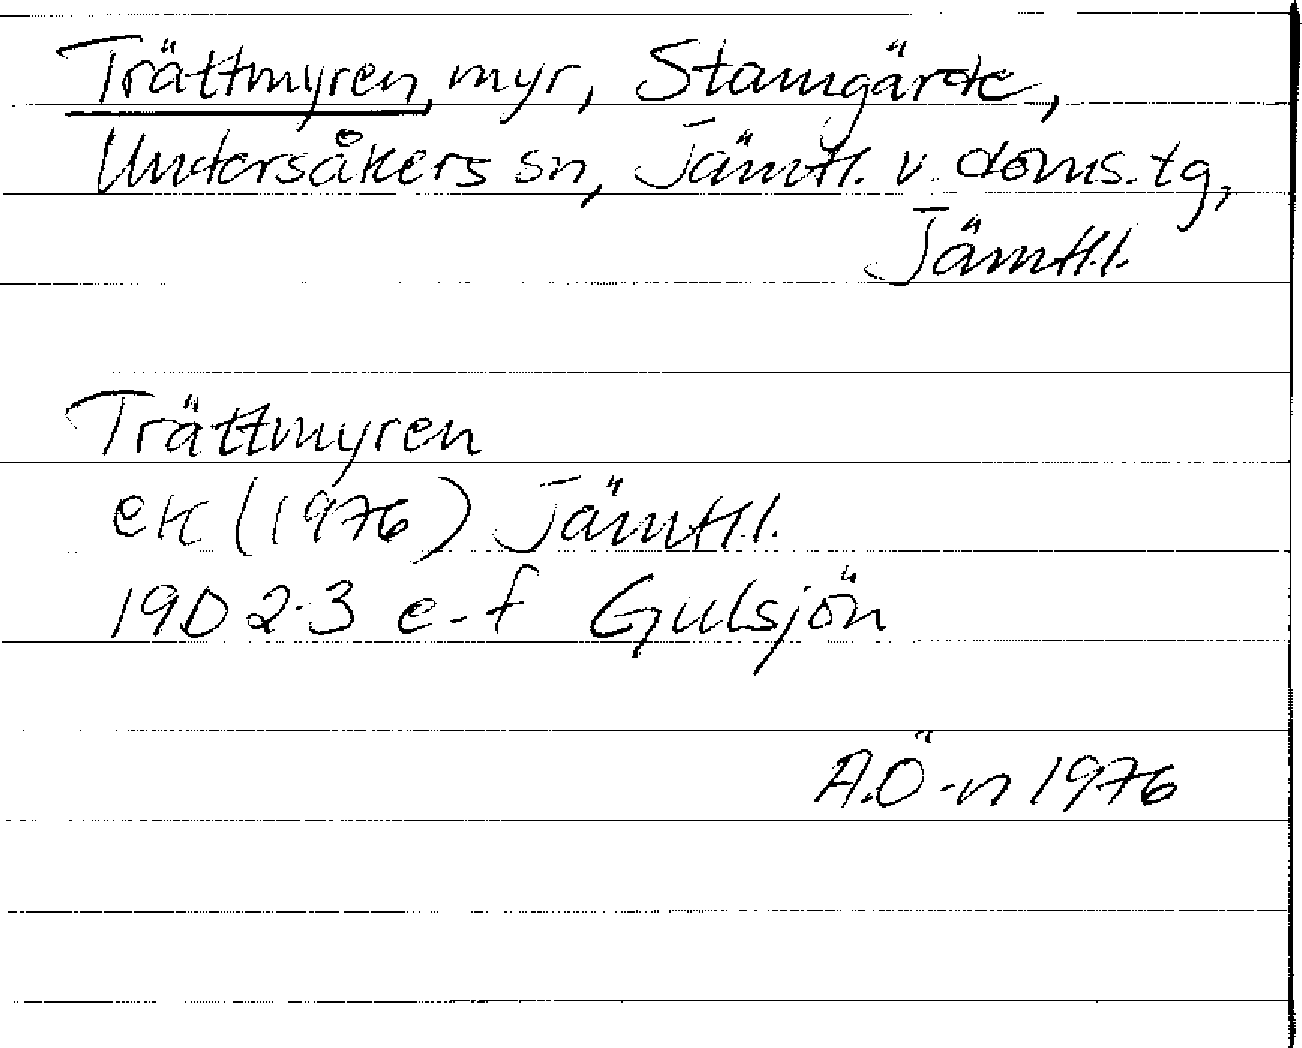 Trättmyren, myr, Stamgärde,
Undersåkers sn, Jämtl. v. doms. tg,
Jämtl.l.
Trättmyren
ek (1976) Jämtl.l.
19D 2-3 e-f Gulsjön
A.Ö-n 1976